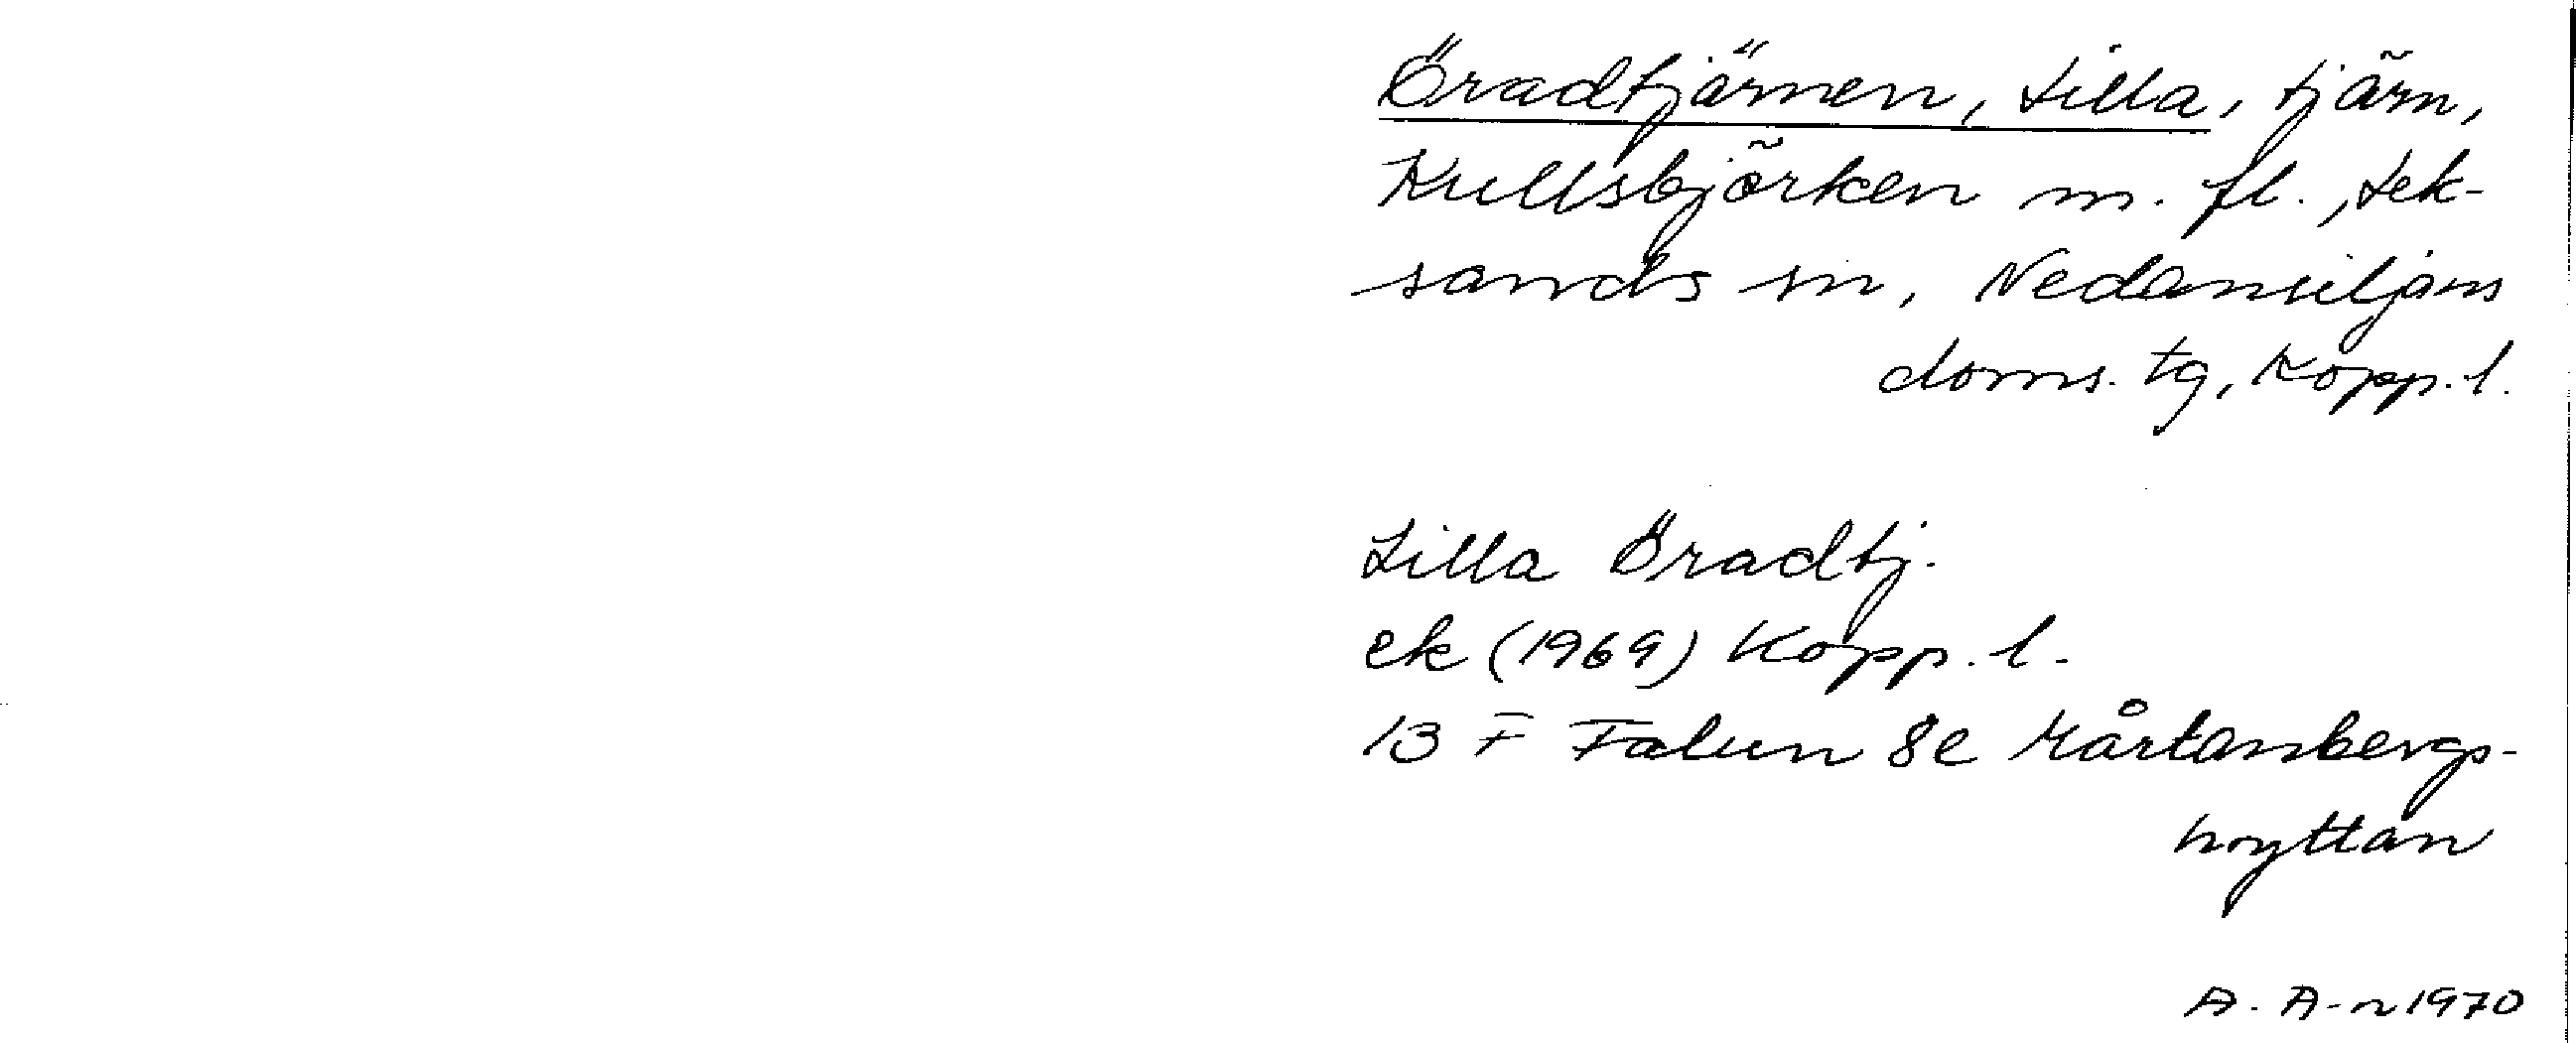 Öradtjärnen, Lilla, tjärn,
Kullsbjörken m. fl., Lek-
sands sn, Nedansiljans
doms. tg, Kopp. l.
Lilla Öradtj.
ek (1969) Kopp. l.
13 F Falun 8e Mårtansbergs-
hyttan
A. A-n 1970